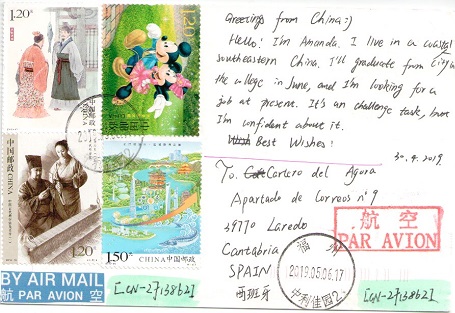 1.20元
120
中国邮政
中国邮政 CHINA
1.20元
1.50元
CHINA 中国邮政
BY AIR MAIL
航 PAR AVION 空
[CN-2713862]
Greetings from China :)
Hello! I'm Amanda. I live in a coastal city in
southeastern China. I'll graduate from
the college in June, and I'm looking for a
job at present. It's an challenge task, but
I'm confident about it.
Best Wishes!
30.4.2019
To. Cartero del Agora
Apartado de Correos nº 9
39770 Laredo
Cantabria
SPAIN
西班牙
航 空
PAR AVION
福 州
2019.05.06.17
[CN-2713862]